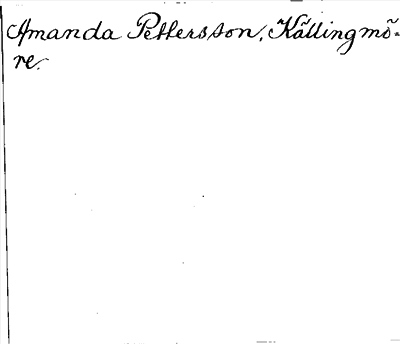 Amanda Pettersson, Kållingmö-
re.